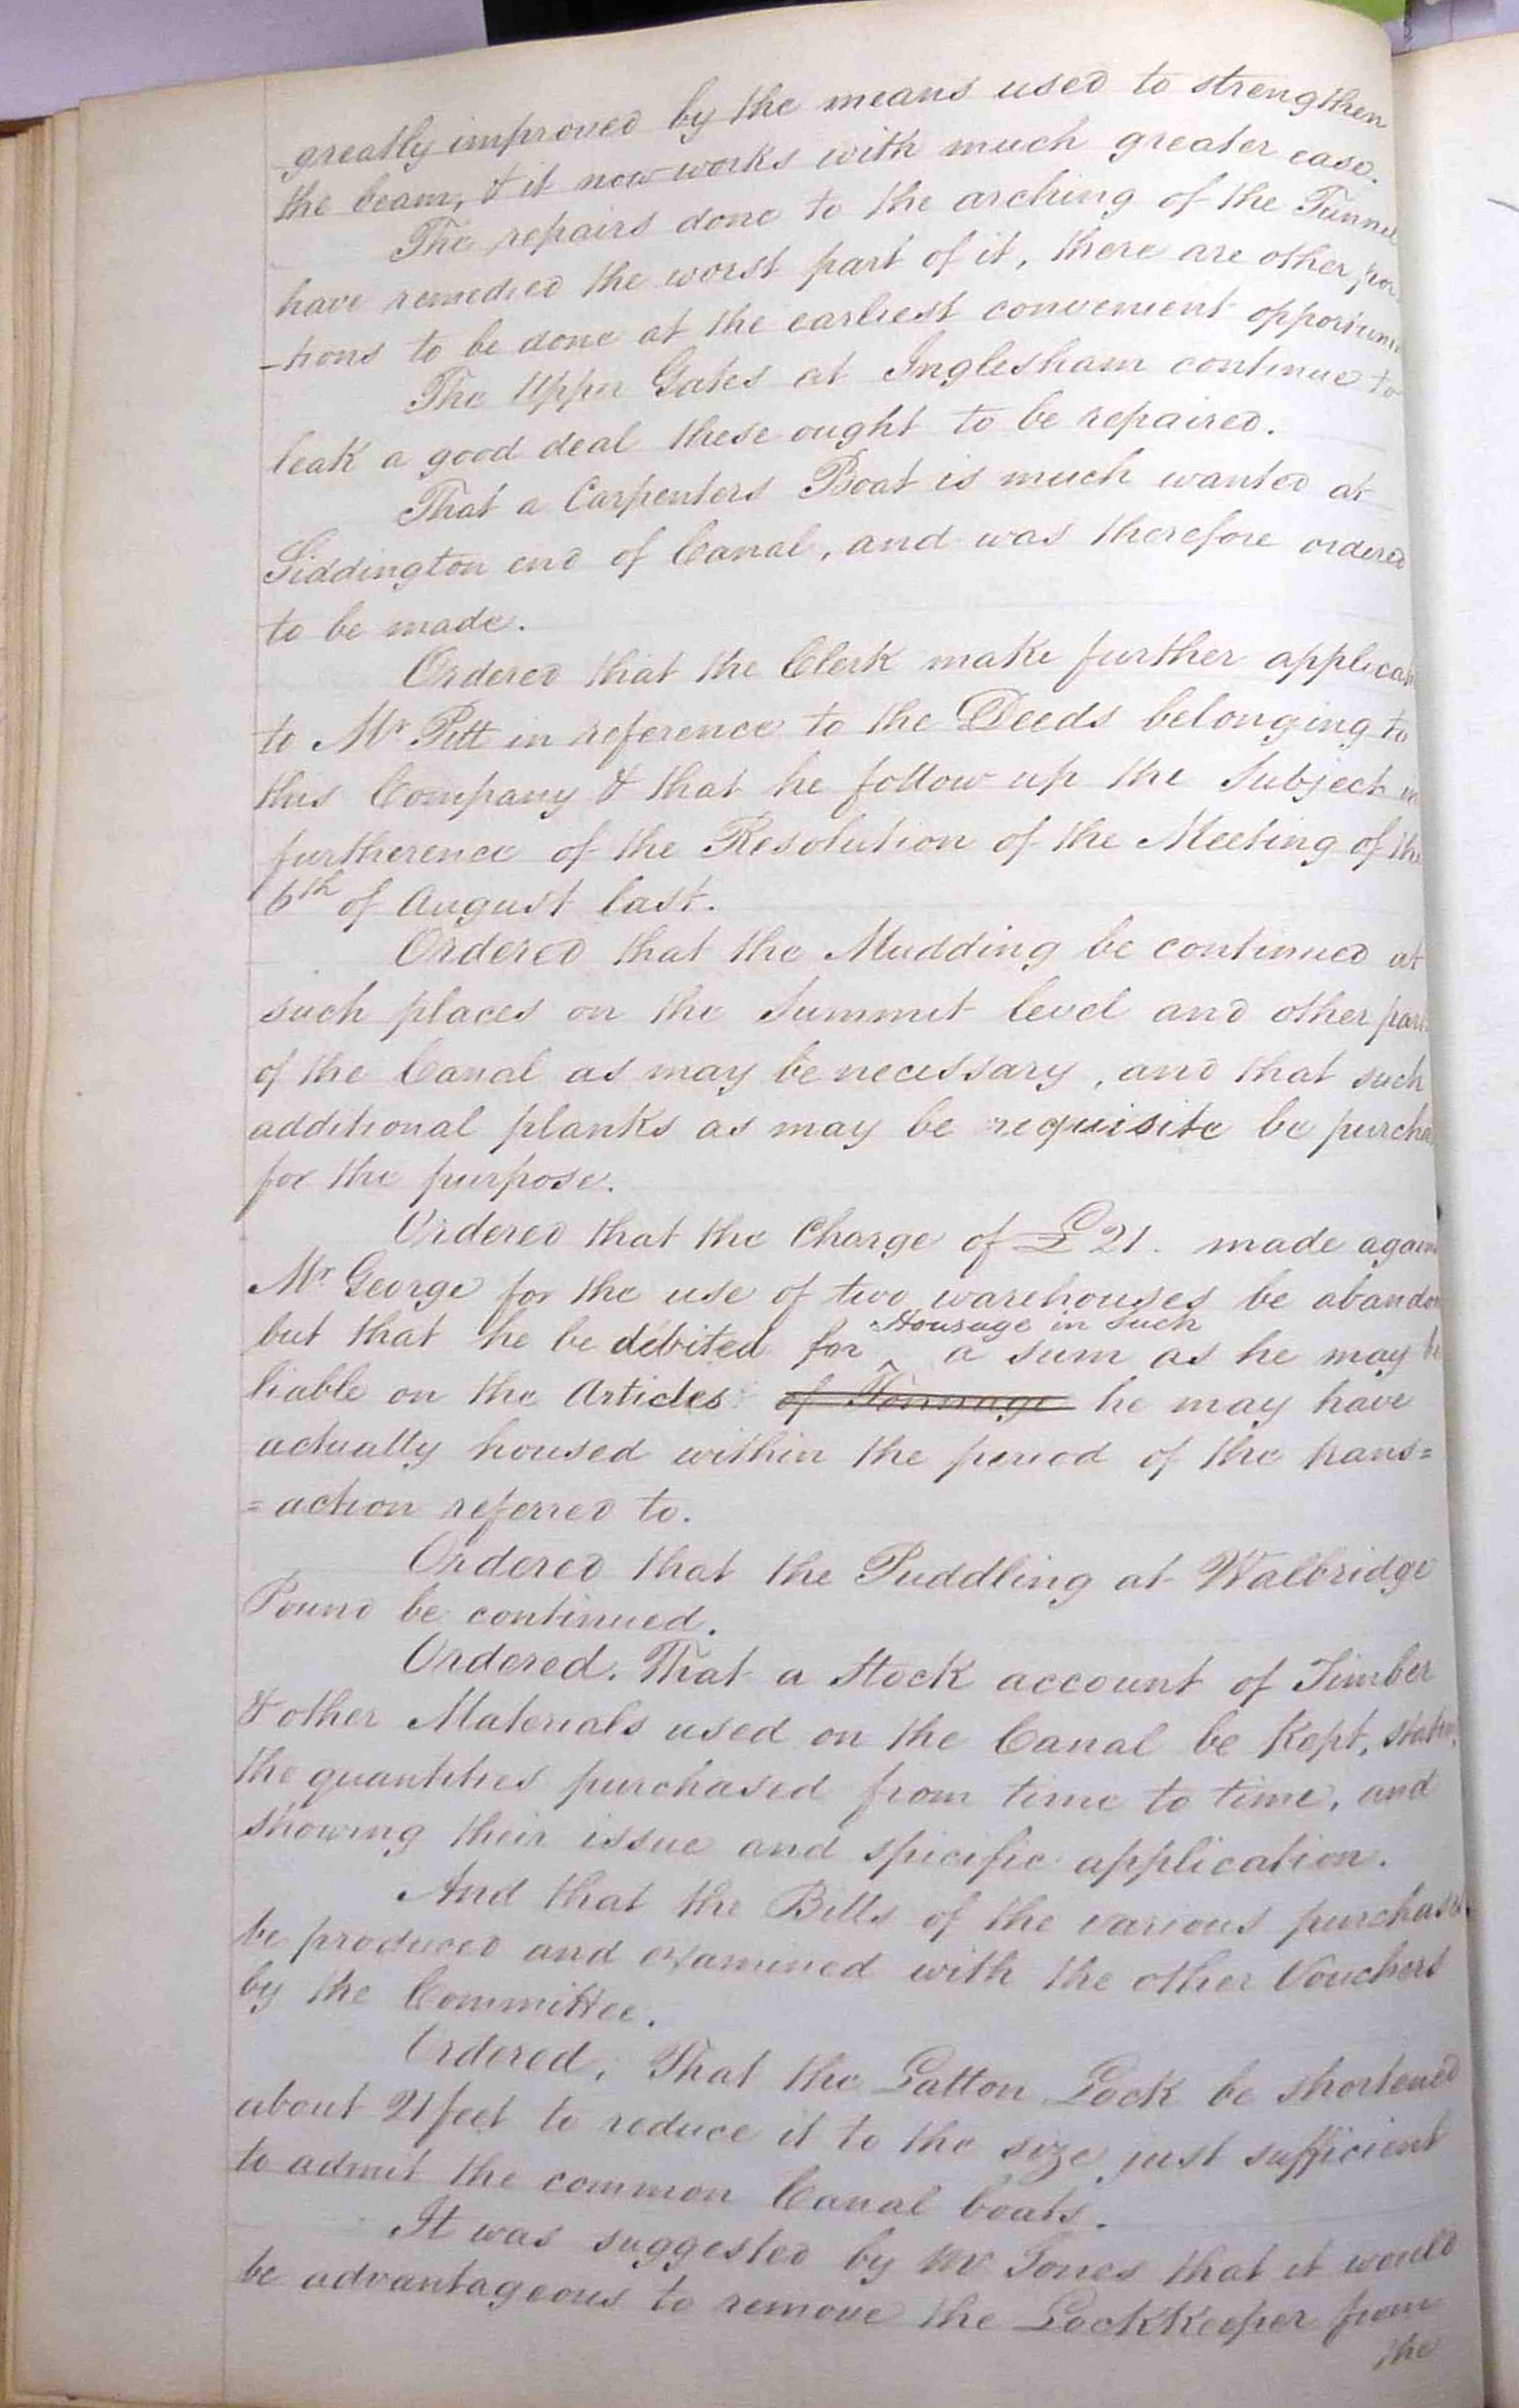 greatly improved by the means used to strengthen
the beam, & it now works with much greater ease.
The repairs done to the arching of the Tunnel
have remedied the worst part of it, there are other por
-tions to be done at the earliest convenient opportuni
The Upper Gates at Inglesham continue to
leak a good deal these ought to be repaired.
That a Carpenters Boat is much wanted at
Siddington end of Canal, and was therefore ordered
to be made.
Ordered that the Clerk make further applicat
to Mr Pitt in reference to the Deeds belonging to
this Company & that he follow up the Subject in
furtherence of the Resolution of the Meeting of the
6th of August last.
Ordered that the Mudding be continued at
such places on the Summit level and other part
of the Canal as may be necessary, and that such
additional planks as may be requisite be purcha
for the purpose.
Ordered that the Charge of £21. made again
Mr George for the use of two warehouses be abandon
Housage in Such
but that he be debited for ‸ a sum as he may be
liable on the Articles of Tonnage he may have
actually housed within the period of the trans=
=action referred to.
Ordered that the Puddling at Walbridge
Pound be continued.
Ordered. That a Stock account of Timber
& other Materials used on the Canal be Kept, statin
the quantities purchased from time to time, and
showing their issue and spicific application.
And that the Bills of the various purchases
be produced and examined with the other Vouchers
by the Committee.
Ordered, That the Latton Lock be shortened
about 21 feet to reduce it to the size just sufficient
to admit the common Canal boats.
It was suggested by Mr Jones that it would
be advantageous to remove the LockKeeper from
the